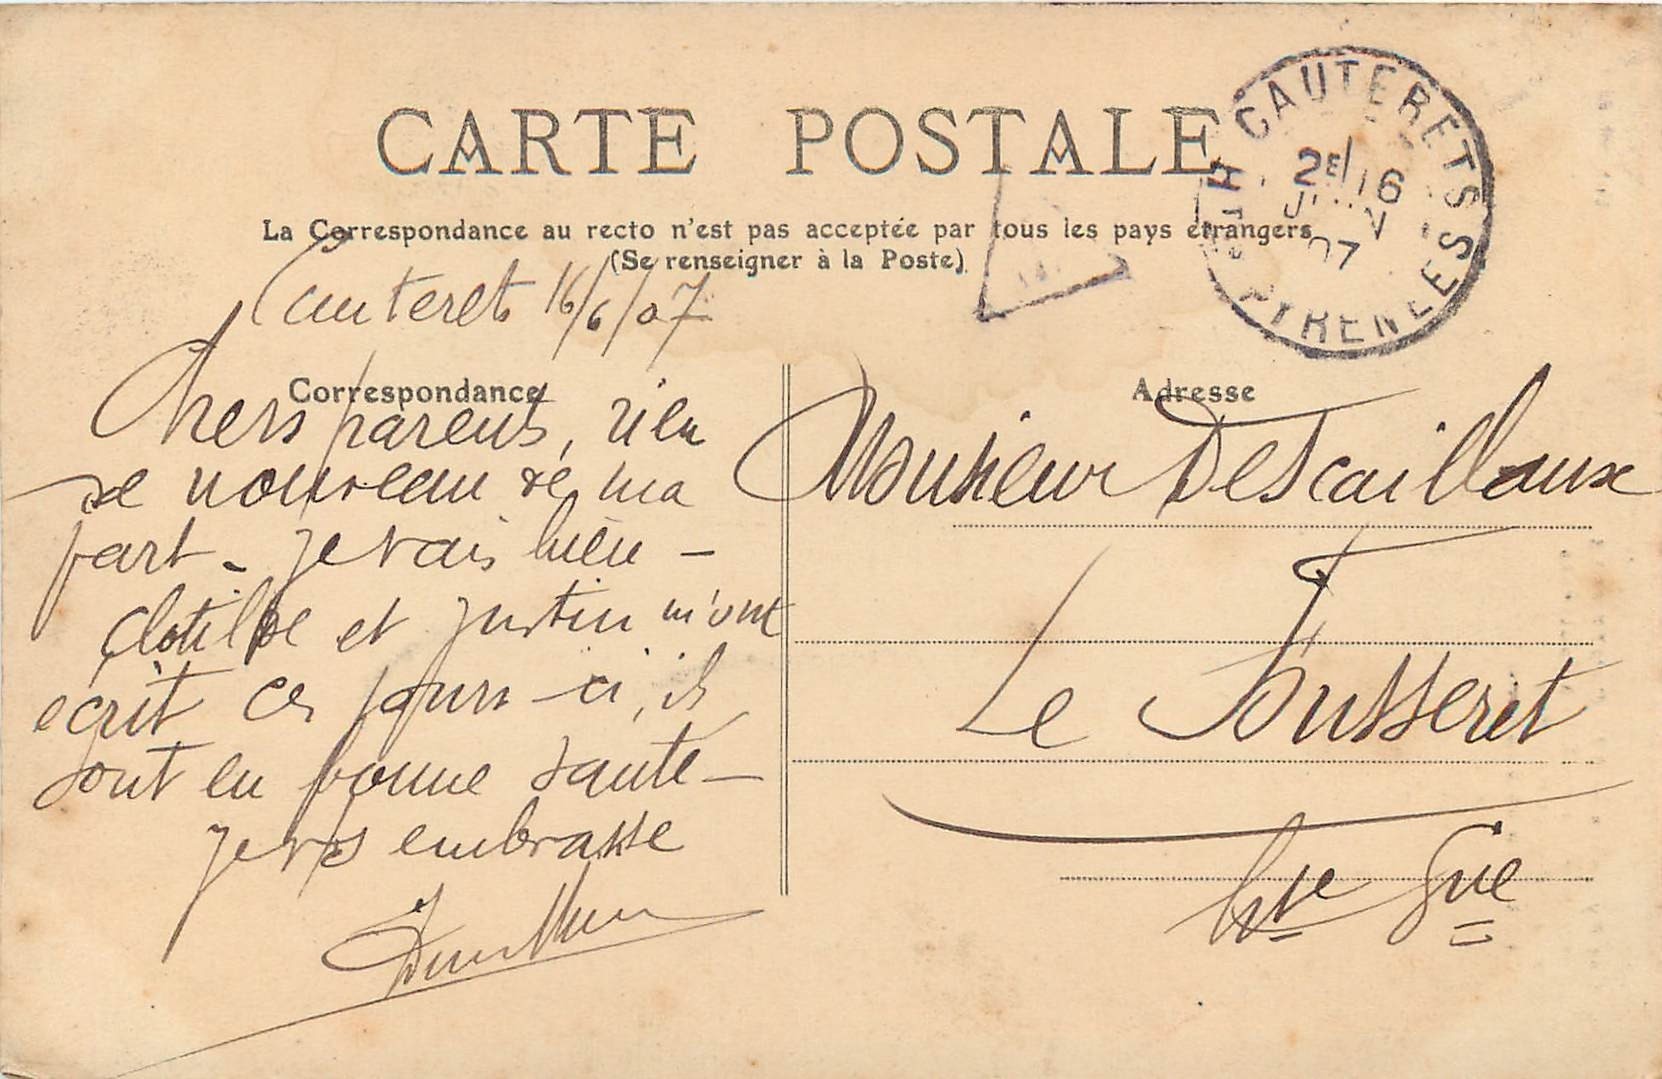 CARTE POSTALE
La Correspondance au recto n'est pas acceptée par tous les pays étrangers
(Se renseigner à la Poste)
CAUTERETS
2E 16
JUIN
07
HTES PYRENEES
Cauterets 16/6/07
Correspondance
Chers parents, rien
de nouveau de ma
part - je vais bien -
Clotilde et Justin m'ont
écrit ces jours-ci, ils
sont en bonne santé -
je vs embrasse
Adresse
Monsieur Descaillaux
Le Fousseret
Hte Gne